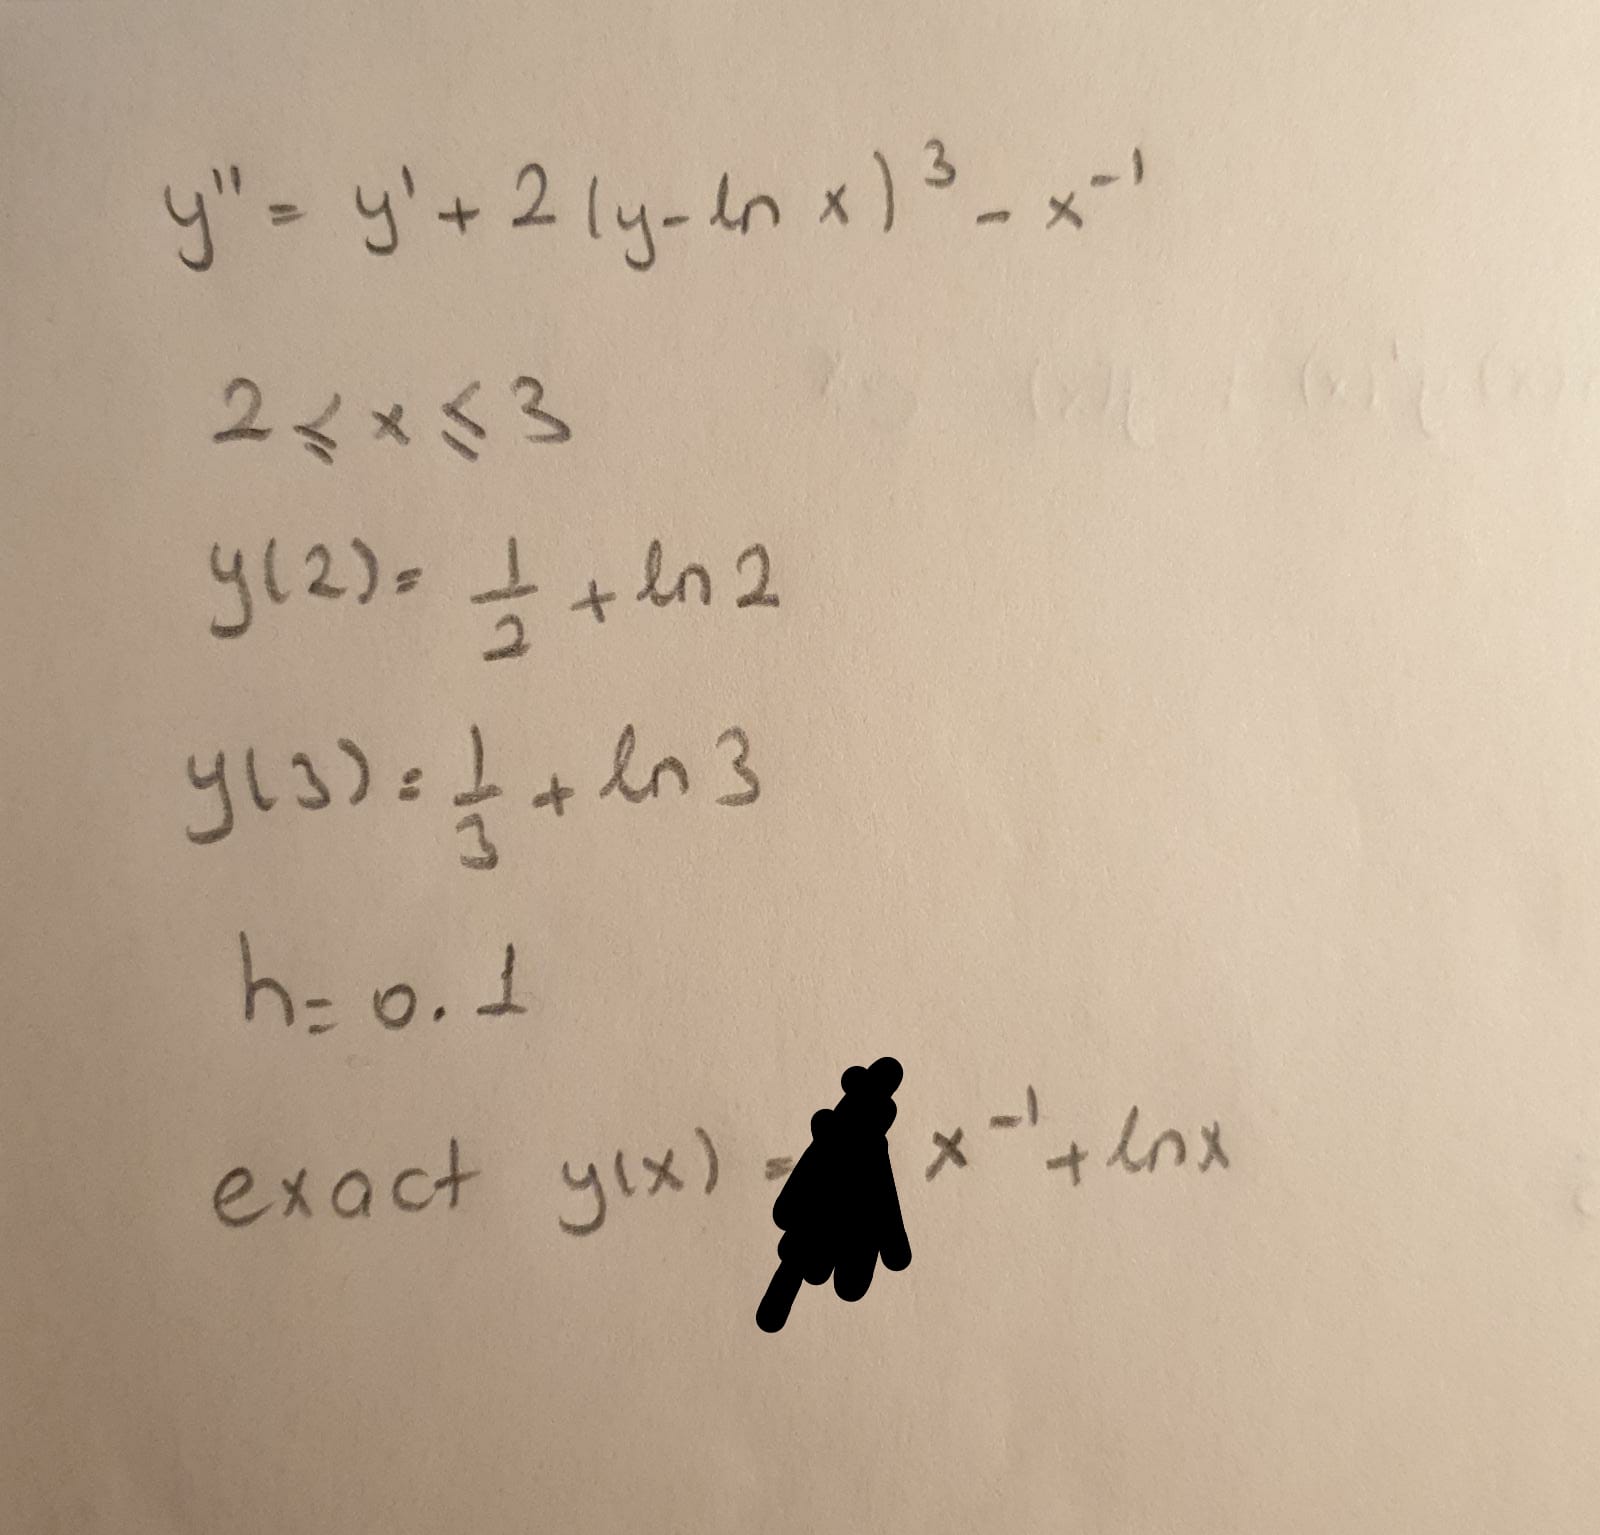 y'' = y' + 2(y - ln x)³ - x⁻¹
2 ≤ x ≤ 3
y(2) = 1/2 + ln 2
y(3) = 1/3 + ln 3
h = 0.1
exact y(x) = x⁻¹ + ln x